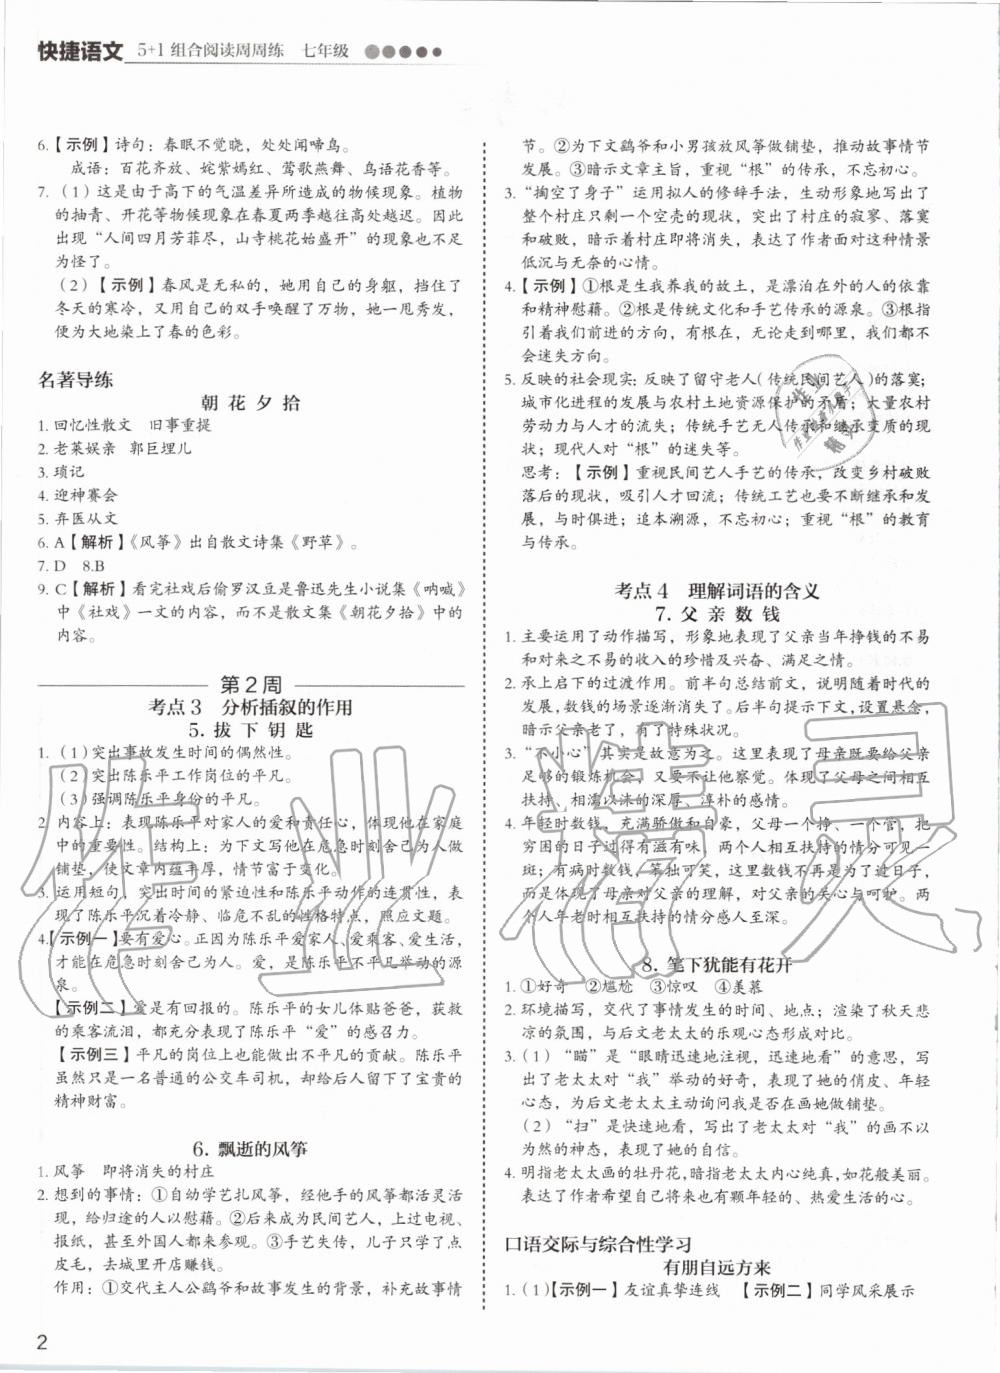 快捷语文 5+1组合阅读周周练 七年级
6.【示例】诗句：春眠不觉晓，处处闻啼鸟。
成语：百花齐放、姹紫嫣红、莺歌燕舞、鸟语花香等。
7.（1）这是由于高下的气温差异所造成的物候现象。植物
的抽青、开花等物候现象在春夏两季越往高处越迟。因此
出现“人间四月芳菲尽，山寺桃花始盛开”的现象也不足
为怪了。
（2）【示例】春风是无私的，她用自己的身躯，挡住了
冬天的寒冷，又用自己的双手唤醒了万物，她一甩秀发，
便为大地染上了春的色彩。
名著导练
朝花夕拾
1. 回忆性散文 旧事重提
2. 老莱娱亲 郭巨埋儿
3. 琐记
4. 迎神赛会
5. 弃医从文
6. A【解析】《风筝》出自散文诗集《野草》。
7. D 8.B
9. C【解析】看完社戏后偷罗汉豆是鲁迅先生小说集《呐喊》
中《社戏》一文的内容，而不是散文集《朝花夕拾》中的
内容。
第2周
考点3 分析插叙的作用
5. 拔下钥匙
1.（1）突出事故发生时间的偶然性。
（2）突出陈乐平工作岗位的平凡。
（3）强调陈乐平身份的平凡。
2. 内容上：表现陈乐平对家人的爱和责任心，体现他在家庭
中的重要性。结构上：为下文写他在危急时刻舍己为人做
铺垫，使文章内蕴丰厚，情节富于变化。
3. 运用短句，突出时间的紧迫性和陈乐平动作的连贯性，表
现了陈乐平沉着冷静、临危不乱的性格特点，照应文题。
4.【示例一】要有爱心。正因为陈乐平爱家人、爱乘客、爱生活，
才能在危急时刻舍己为人。爱，是陈乐平不平凡举动的源
泉。
【示例二】爱是有回报的。陈乐平的女儿体贴爸爸，获救
的乘客流泪，都充分表现了陈乐平“爱”的感召力。
【示例三】平凡的岗位上也能做出不平凡的贡献。陈乐平
虽然只是一名普通的公交车司机，却给后人留下了宝贵的
精神财富。
6. 飘逝的风筝
1. 风筝 即将消失的村庄
2. 想到的事情：①自幼学艺扎风筝，经他手的风筝都活灵活
现，给归途的人以慰藉。②后来成为民间艺人，上过电视、
报纸，甚至外国人都来参观。③手艺失传，儿子只学了点
皮毛，去城里开店赚钱。
作用：①交代主人公鹞爷和故事发生的背景，补充故事情
节。②为下文鹞爷和小男孩放风筝做铺垫，推动故事情节
发展。③暗示文章主旨，重视“根”的传承，不忘初心。
3.“掏空了身子”运用拟人的修辞手法，生动形象地写出了
整个村庄只剩一个空壳的现状，突出了村庄的寂寥、落寞
和破败，暗示着村庄即将消失，表达了作者面对这种情景
低沉与无奈的心情。
4.【示例】①根是生我养我的故土，是漂泊在外的人的依靠
和精神慰藉。②根是传统文化和手艺传承的源泉。③根指
引着我们前进的方向，有根在，无论走到哪里，我们都不
会迷失方向。
5. 反映的社会现实：反映了留守老人（传统民间艺人）的落寞；
城市化进程的发展与农村土地资源保护的矛盾；大量农村
劳动力与人才的流失；传统手艺无人传承和继承变质的现
状；现代人对“根”的迷失等。
思考：【示例】重视民间艺人手艺的传承，改变乡村破败
落后的现状，吸引人才回流；传统工艺也要不断继承和发
展，与时俱进；追本溯源，不忘初心；重视“根”的教育
与传承。
考点4 理解词语的含义
7. 父亲数钱
1. 主要运用了动作描写，形象地表现了父亲当年挣钱的不易
和对来之不易的收入的珍惜及兴奋、满足之情。
2. 承上启下的过渡作用。前半句总结前文，说明随着时代的
发展，数钱的场景逐渐消失了。后半句提示下文，设置悬念，
暗示父亲老了，有了特殊状况。
3.“不小心”其实是故意为之。这里表现了母亲既要给父亲
足够的锻炼机会，又要不让他察觉。体现了父母之间相互
扶持、相濡以沫的深厚、淳朴的感情。
4. 年轻时数钱，充满骄傲和自豪，父母一个挣、一个管，把
穷困的日子过得有滋有味，两个人相互扶持的情分可见一
斑；有病时数钱，笨拙可笑，这里数钱不再是为了过日子，
而是体现了母亲对父亲的理解，对父亲的关心与呵护。两
个人年老时相互扶持的情分感人至深。
8. 笔下犹能有花开
1. ①好奇 ②尴尬 ③惊叹 ④羡慕
2. 环境描写，交代了事情发生的时间、地点；渲染了秋天悲
凉的氛围，与后文老太太的乐观心态形成对比。
3.（1）“瞄”是“眼睛迅速地注视，迅速地看”的意思，写
出了老太太对“我”举动的好奇，表现了她的俏皮、年轻
心态，为后文老太太主动询问我是否在画她做铺垫。
（2）“扫”是快速地看，写出了老太太对“我”的画不以
为然的神态，表现了她的自信。
4. 明指老太太画的牡丹花，暗指老太太内心纯真，如花般美丽。
表达了作者希望自己将来也有颗年轻的、热爱生活的心。
口语交际与综合性学习
有朋自远方来
1.（1）【示例一】友谊真挚连线 【示例二】同学风采展示
2
作业精灵